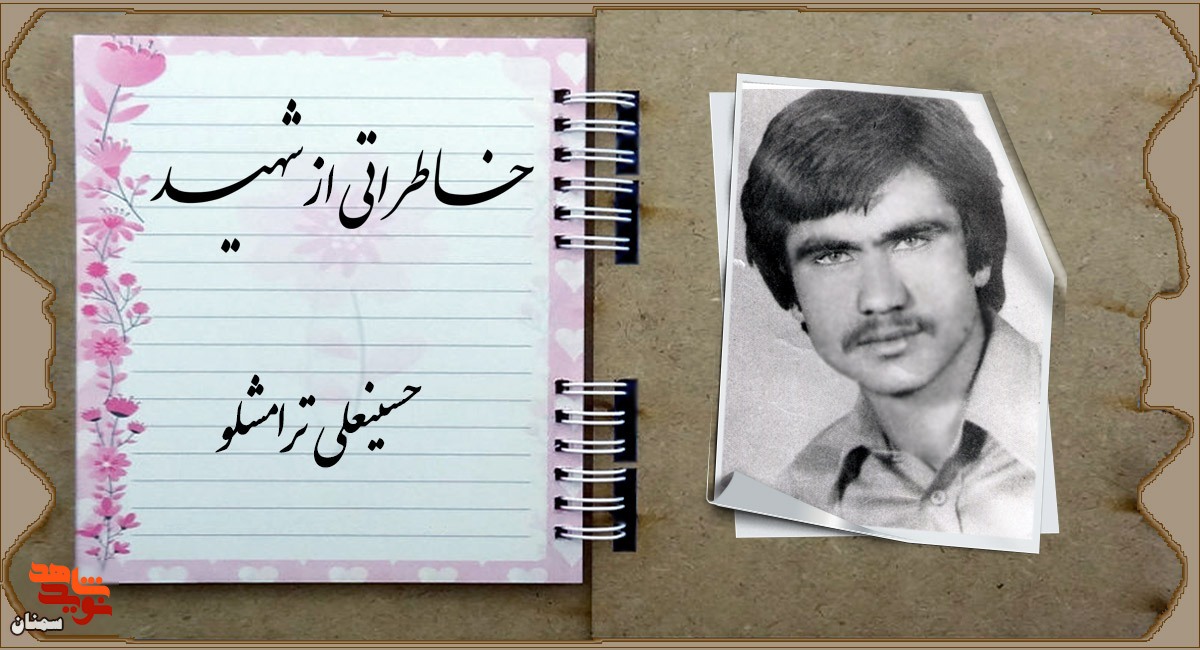 خاطراتی از شهید
حسینعلی ترامشلو
نوید شاهد
سمنان